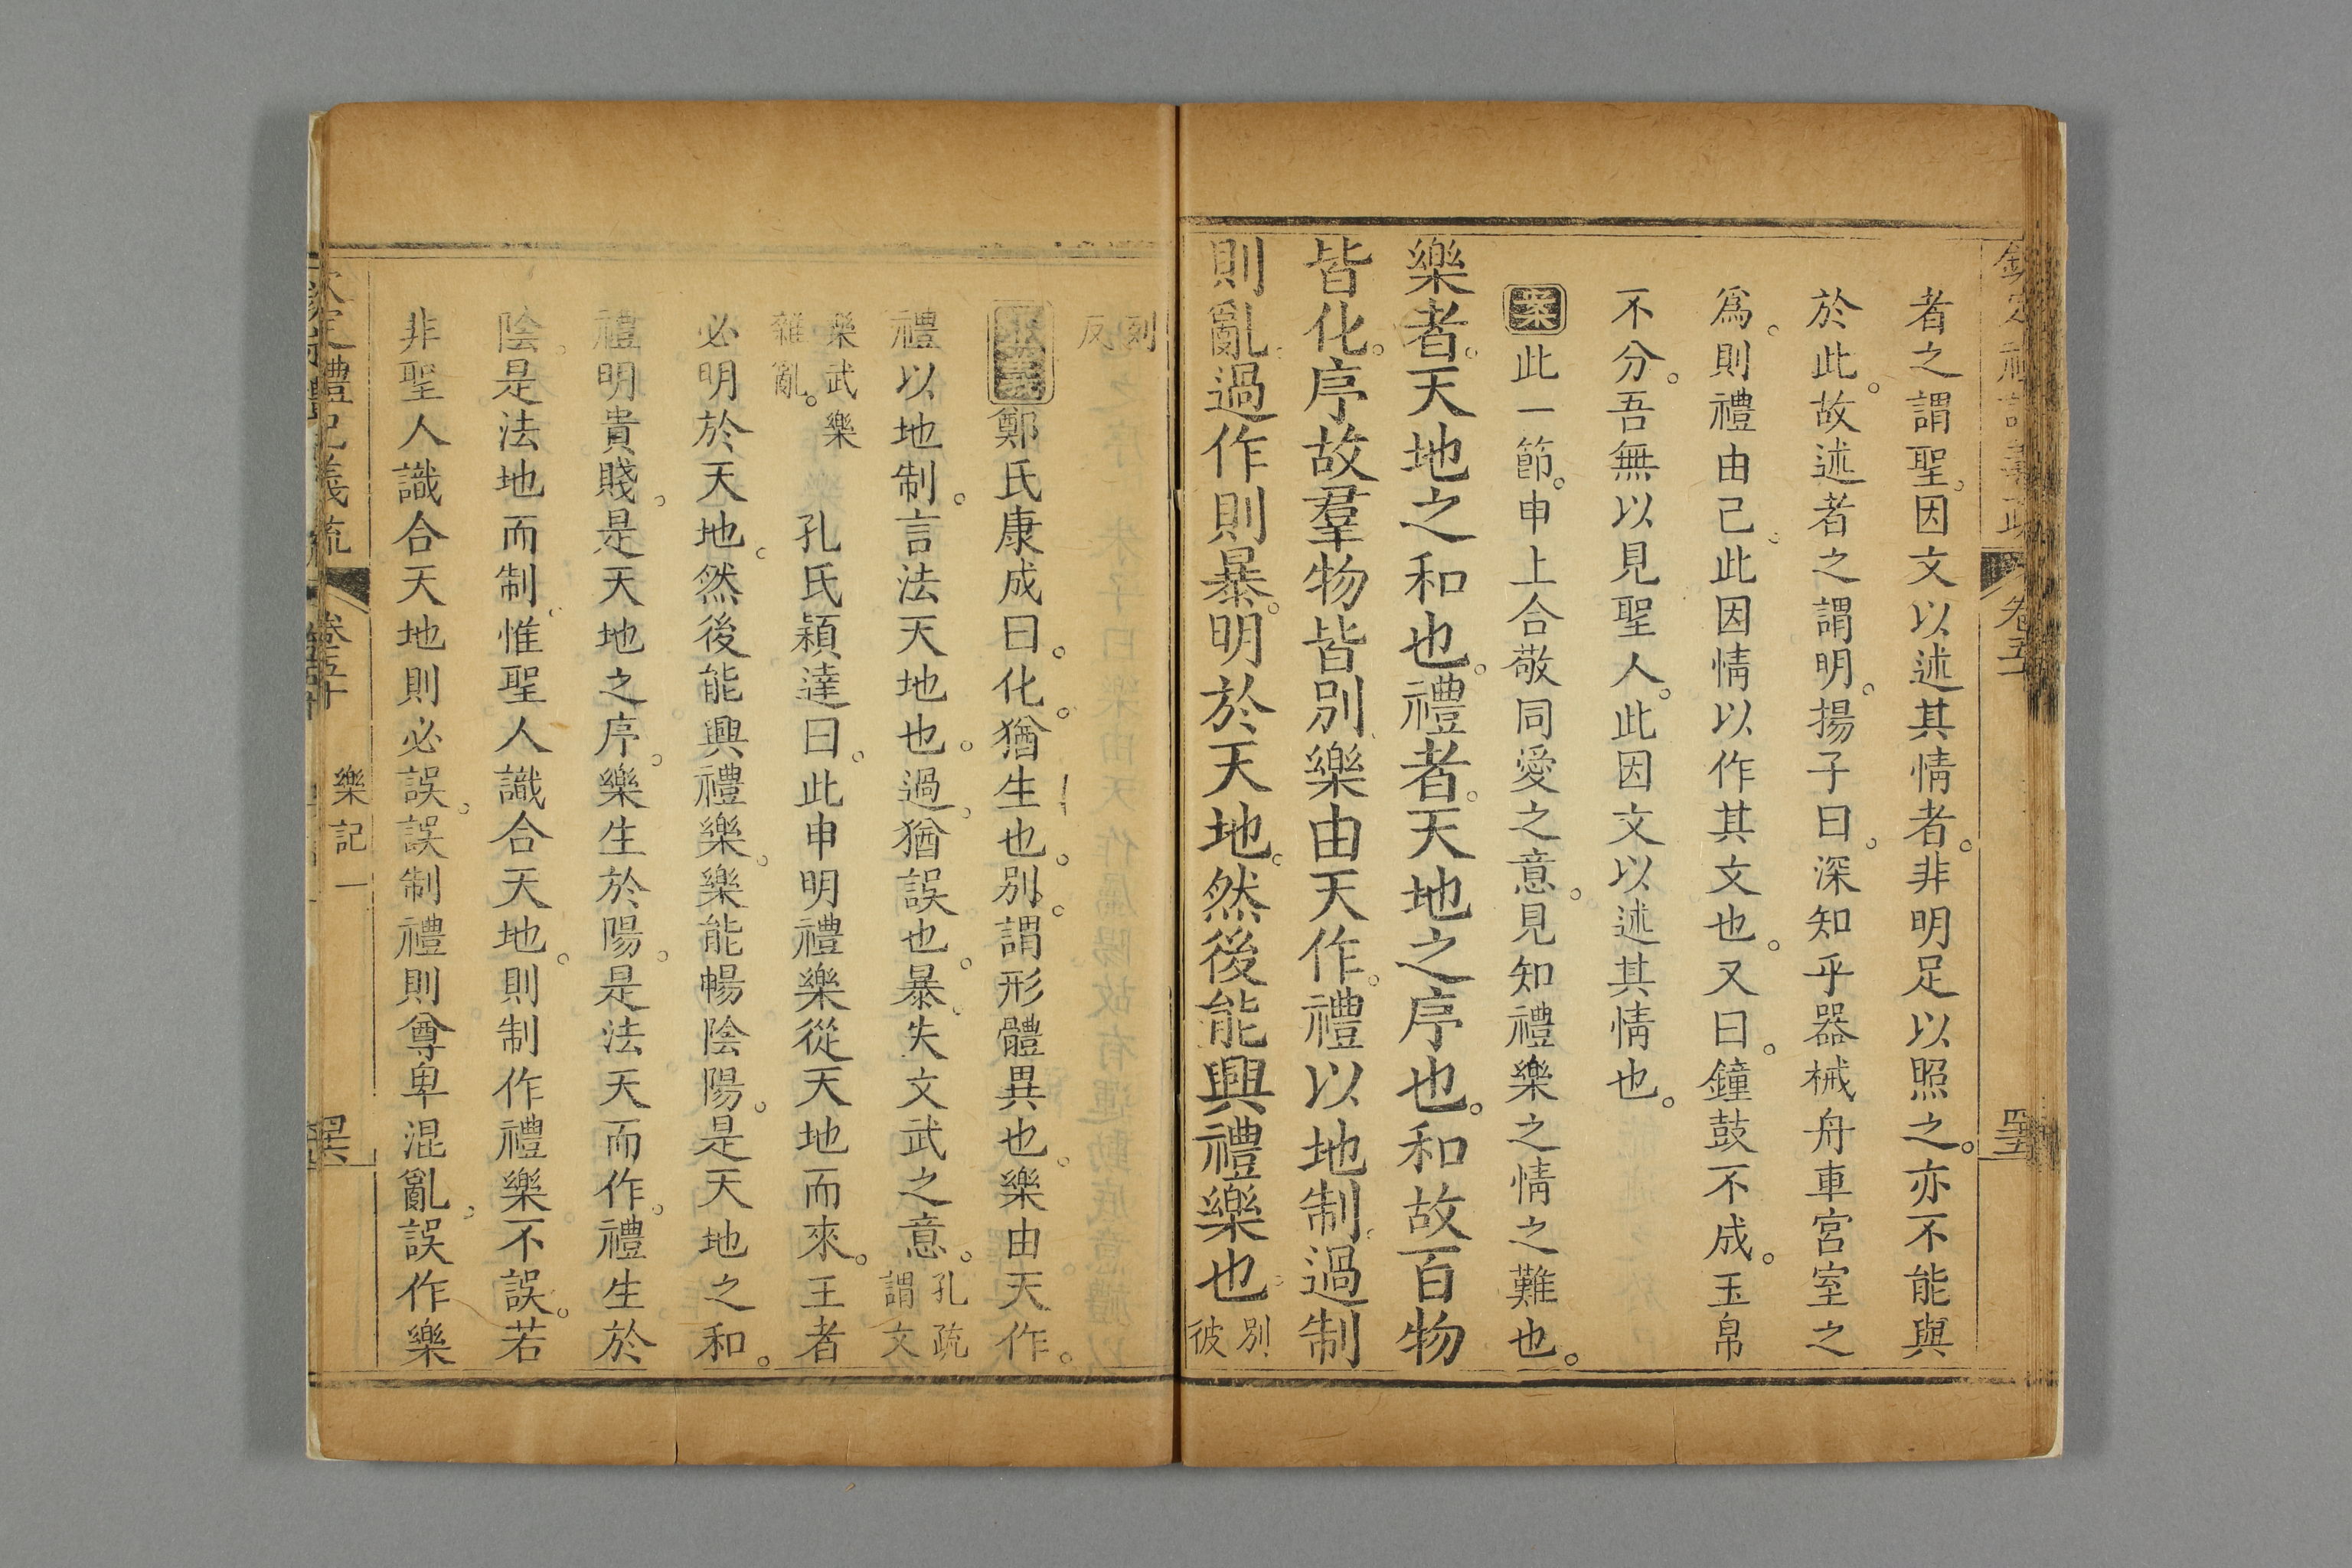 者之謂聖。因文以述其情者。非明足以照之。亦不能與
於此。故述者之謂明。揚子曰。深知乎器械舟車宮室之
爲。則禮由己。此因情以作其文也。又曰。鐘鼓不成。玉帛
不分。吾無以見聖人。此因文以述其情也。
案此一節。申上合敬同愛之意。見知禮樂之情之難也。
樂者。天地之和也。禮者。天地之序也。和故百物
皆化。序故羣物皆別。樂由天作。禮以地制。過制
則亂。過作則暴。明於天地。然後能興禮樂也。別彼
列反
正義鄭氏康成曰。化。猶生也。別。謂形體異也。樂由天作。
禮以地制。言法天地也。過。猶誤也。暴。失文武之意。孔疏謂文
樂武樂雜亂。孔氏穎達曰。此申明禮樂從天地而來。王者
必明於天地。然後能興禮樂。樂能暢陰陽。是天地之和。
禮明貴賤。是天地之序。樂生於陽。是法天而作。禮生於
陰。是法地而制。惟聖人識合天地。則制作禮樂不誤。若
非聖人識合天地則必誤。誤制禮則尊卑混亂。誤作樂
欽定禮記義疏
卷五十
樂記一